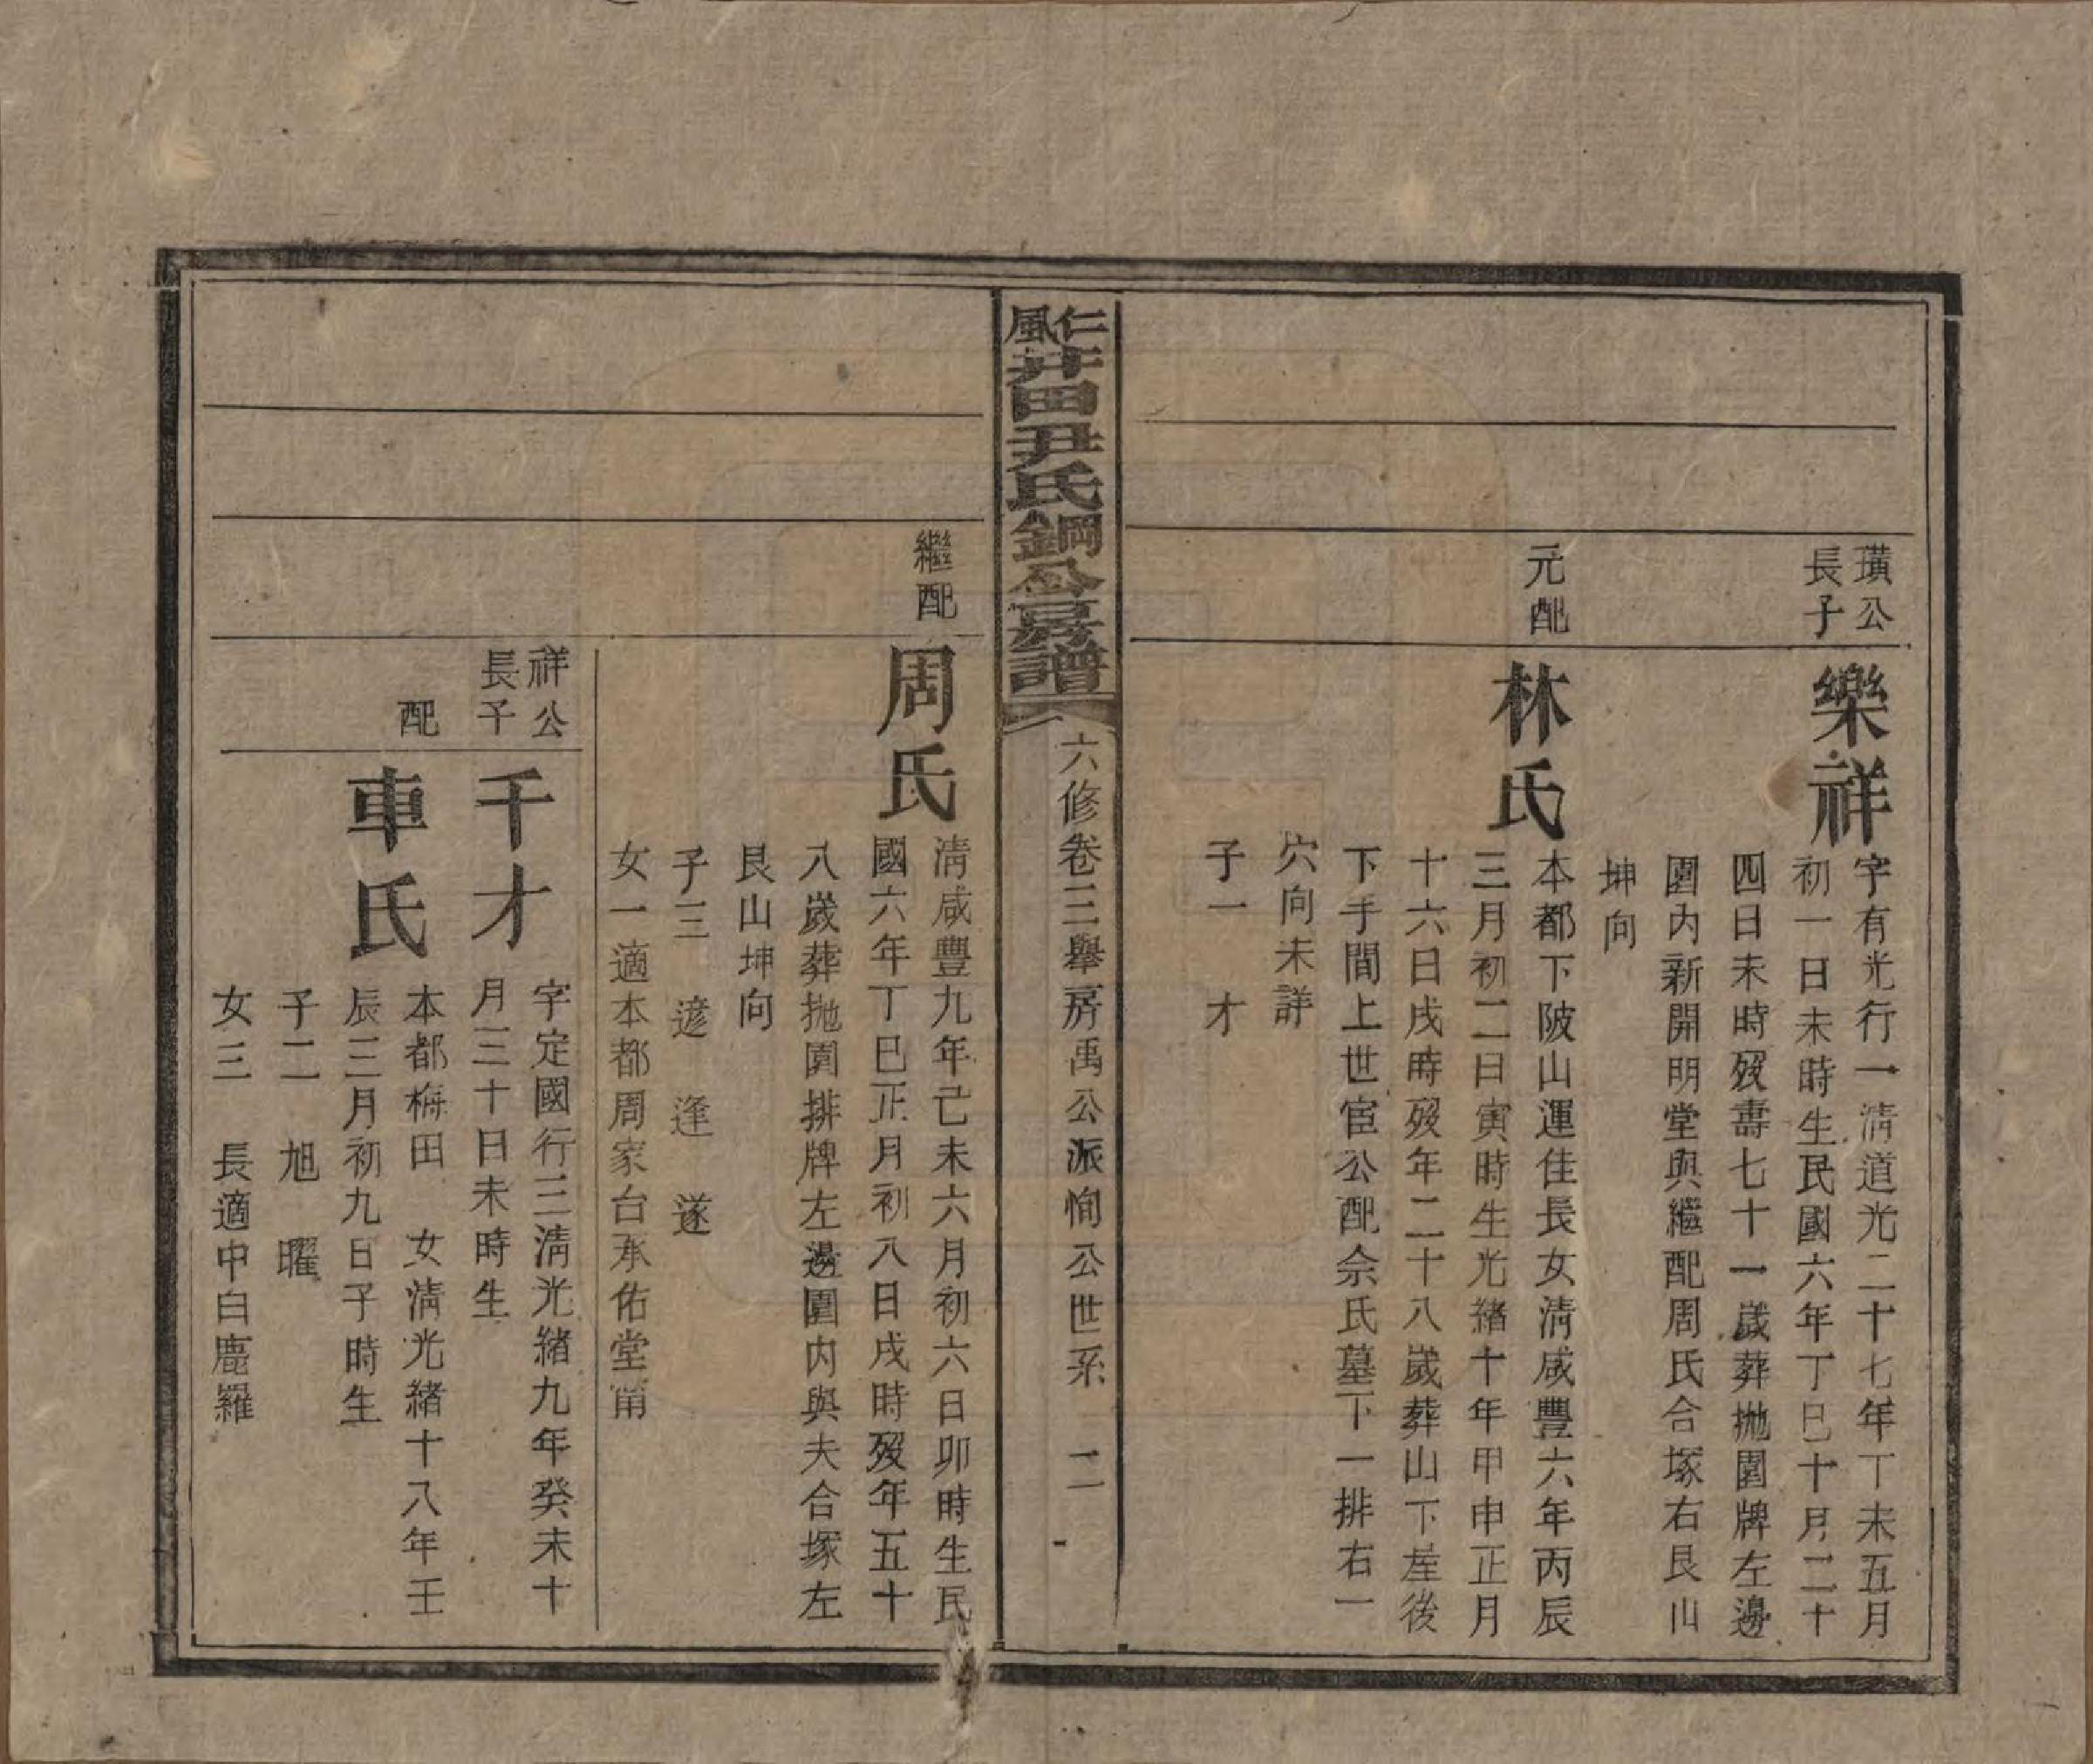 璜公
長子
樂祥
字有光行一清道光二十七年丁未五月
初一日未時生民國六年丁巳十月二十
四日未時歿壽七十一歲葬拋園牌左邊
園內新開明堂與繼配周氏合塚右艮山
坤向
元配
林氏
本都下陂山運佳長女清咸豐六年丙辰
三月初二日寅時生光緒十年甲申正月
十六日戌時歿年二十八歲葬山下垤後
下手間上世宦公配佘氏墓下一排右一
穴向未詳
子一 才
仁風井田尹氏鋼公房譜
六修卷三舉房禹公派恂公世系 二
繼配
周氏
清咸豐九年己未六月初六日卯時生民
國六年丁巳正月初八日戌時歿年五十
八歲葬拋園排牌左邊園內與夫合塚左
艮山坤向
子三 遊 逢 遂
女一適本都周家台承佑堂甫
祥公
長子
千才
字定國行三清光緒九年癸未十
月三十日未時生
配
車氏
本都梅田 女清光緒十八年壬
辰三月初九日子時生
子二 旭 曜
女三 長適中白鹿羅